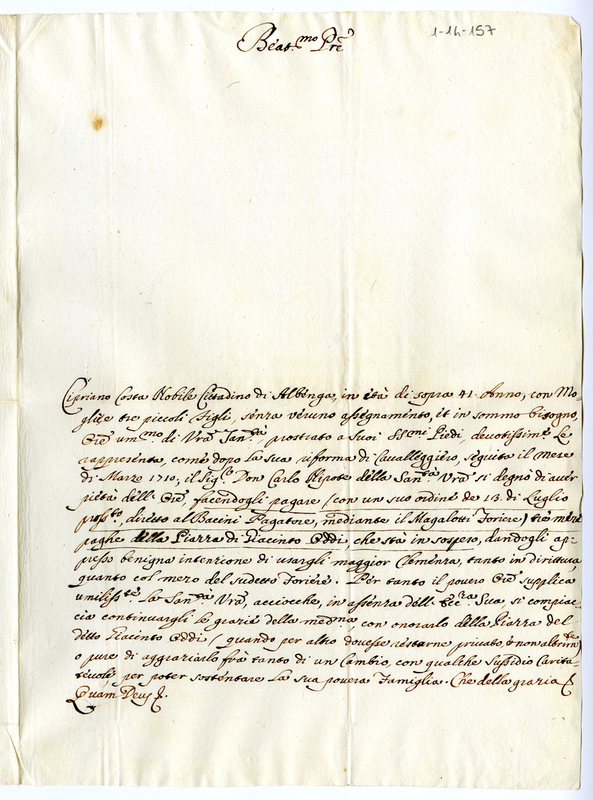 1-14-157
Beat.mo Prē
Cipriano Costa Nobile Cittadino di Albenga, in età di sopra 41. Anno, con Mo=
glie e tre piccoli Figli, senza veruno assegnamento, et in sommo bisogno,
Orē um.mo di Vrā San.tà, prostrato a Suoi SS.mi Piedi, devotissimē Le
rappresenta, come dopo la sua riforma di Cavalleggiero, seguita il mese
di Marzo 1710, il Sig.re Don Carlo Nipote della San.tà Vrā si degnò di aver
pietà dell' Orē facendogli pagare (con un suo ordine de 13. di Luglio
pross.to, diretto al Bacini Pagatore, mediante il Magalotti Foriere) tre mere
paghe della Piazza di Giacinto Oddi, che stà in sospeso, dandogli ap=
presso benigna intenzione di usargli maggior Clemenza, tanto in dirittura
quanto col mezo del sudetto Foriere. Per tanto il povero Orē supplica
umiliss.te La San.tà Vrā, acciocche, in assenza dell' Ecc.za Sua, si compiac=
cia continuargli le grazie della med.ma, con onorarlo della Piazza del
detto Giacinto Oddi (quando per altro dovesse restarne privato, e non altrim.te)
o pure di aggraziarlo frà tanto di un Cambio, con qualche Sussidio Carita=
tevole, per poter sostentare la sua povera Famiglia. Che della grazia &
Quam Deus &.